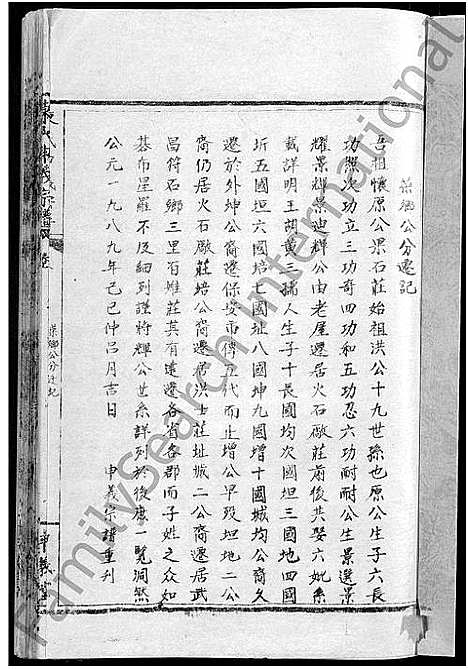 榮鄉公分遷記
吾祖懷原公果石莊始祖洪公十九世孫也原公生子六長
功照次功立三功奇四功和五功忍六功耐耐公生景選景
耀景輝景迪輝公由老屋遷居火石廠莊前後共娶六妣系
載詳明王胡黃三孺人生子十長國均次國坦三國地四國
圻五國垣六國培七國址八國坤九國增十國城均公裔久
遷於外坤公裔遷保安市傳五代而止增公早歿坦地二公
裔仍居火石廠莊培公裔遷居洪士莊址城二公裔遷居武
昌符石鄉三里百姓莊其有遠遷各省各郡而子姓之众如
碁布星羅不及細列謹將輝公世系詳列於後庶一覽洞然
公元一九八九年己巳仲呂月吉日
申義宗譜重刋
榮鄉公分迁記
申義堂
FamilySearch International